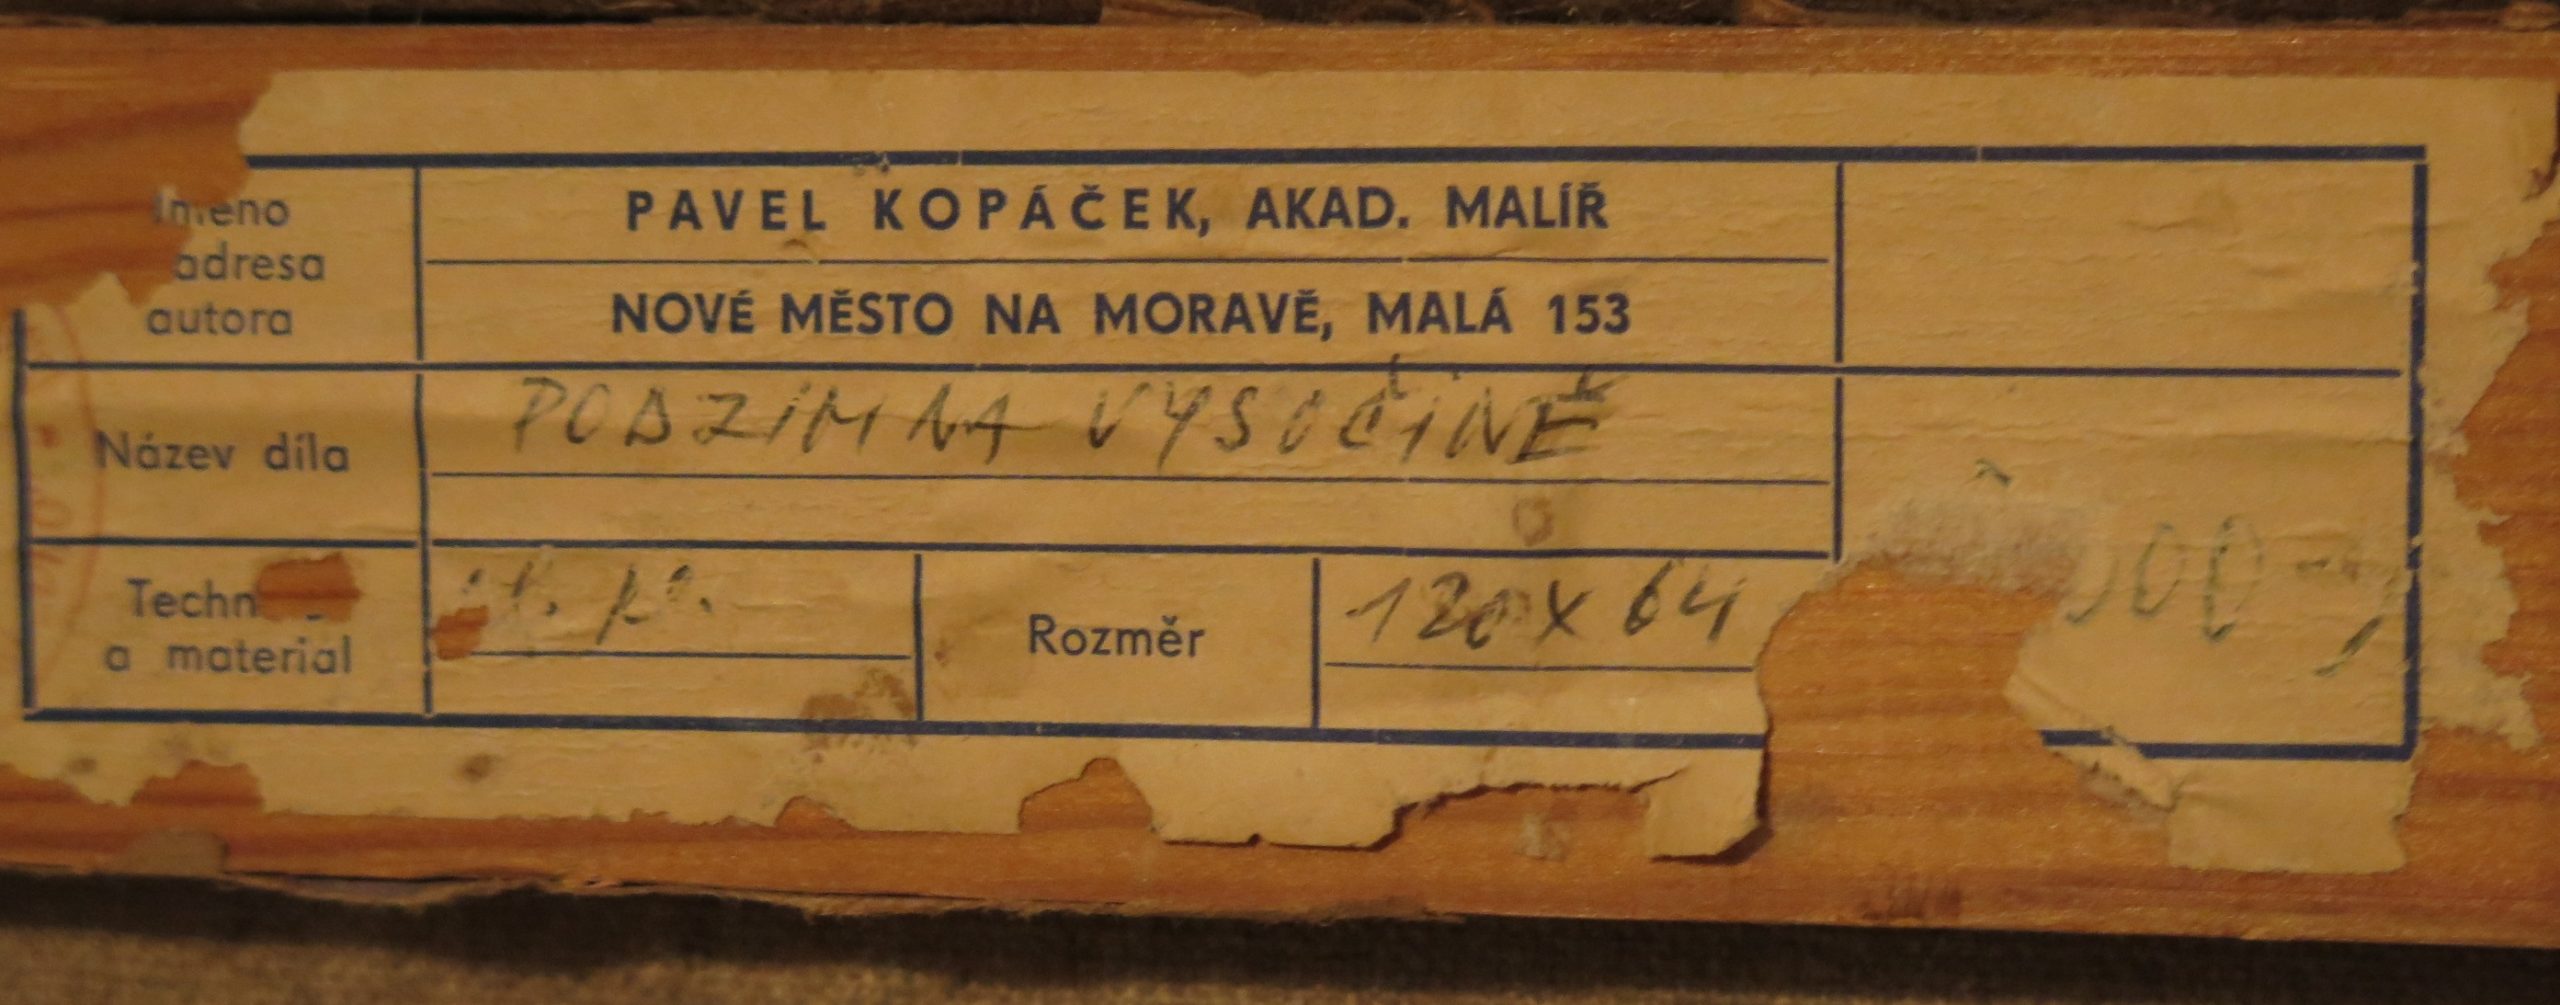 adresa
autora
PAVEL KOPÁČEK, AKAD. MALÍŘ
NOVÉ MĚSTO NA MORAVĚ, MALÁ 153
Název díla
PODZIM NA VYSOČINĚ
a material
Rozměr
120 x 64